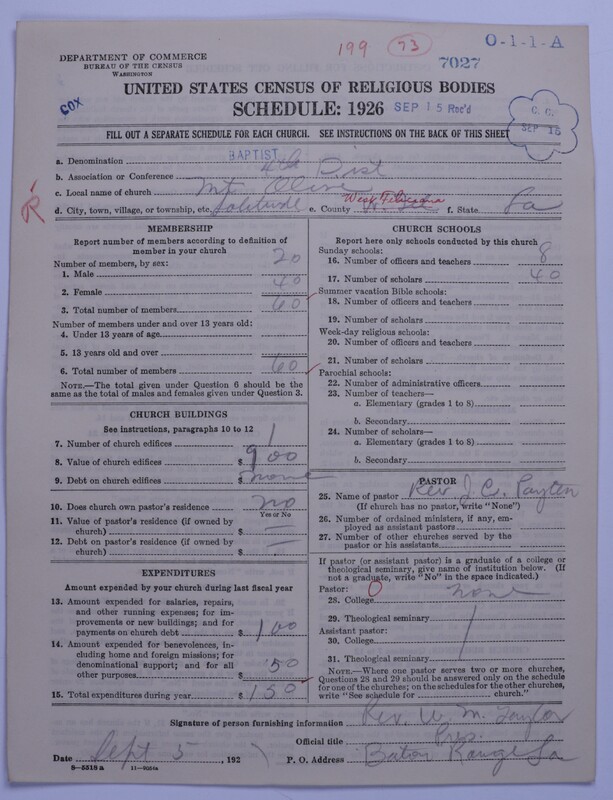 199 73 O-1-1-A
7027
DEPARTMENT OF COMMERCE
BUREAU OF THE CENSUS
WASHINGTON
COX
UNITED STATES CENSUS OF RELIGIOUS BODIES
SCHEDULE: 1926 SEP 15 Rec'd
C. C.
SEP 16
FILL OUT A SEPARATE SCHEDULE FOR EACH CHURCH. SEE INSTRUCTIONS ON THE BACK OF THIS SHEET
a. Denomination BAPTIST
b. Association or Conference 4th Dist
c. Local name of church Mt. Olive
d. City, town, village, or township, etc. Solitude e. County West Feliciana f. State La
R
MEMBERSHIP
Report number of members according to definition of
member in your church
Number of members, by sex:
1. Male 20
2. Female 40
3. Total number of members 60
Number of members under and over 13 years old:
4. Under 13 years of age
5. 13 years old and over
6. Total number of members 60
NOTE.—The total given under Question 6 should be the
same as the total of males and females given under Question 3.
CHURCH BUILDINGS
See instructions, paragraphs 10 to 12
7. Number of church edifices 1
8. Value of church edifices $ 900
9. Debt on church edifices $ none
10. Does church own pastor's residence no
Yes or No
11. Value of pastor's residence (if owned by
church) $ —
12. Debt on pastor's residence (if owned by
church) $ —
EXPENDITURES
Amount expended by your church during last fiscal year
13. Amount expended for salaries, repairs,
and other running expenses; for im-
provements or new buildings; and for
payments on church debt $ 100
14. Amount expended for benevolences, in-
cluding home and foreign missions; for
denominational support; and for all
other purposes $ 50
15. Total expenditures during year $ 150
CHURCH SCHOOLS
Report here only schools conducted by this church
Sunday schools:
16. Number of officers and teachers 8
17. Number of scholars 40
Summer vacation Bible schools:
18. Number of officers and teachers
19. Number of scholars
Week-day religious schools:
20. Number of officers and teachers
21. Number of scholars
Parochial schools:
22. Number of administrative officers
23. Number of teachers—
a. Elementary (grades 1 to 8)
b. Secondary
24. Number of scholars—
a. Elementary (grades 1 to 8)
b. Secondary
PASTOR
25. Name of pastor Rev. J. C. Payten
(If church has no pastor, write "None")
26. Number of ordained ministers, if any, em-
ployed as assistant pastors
27. Number of other churches served by the
pastor or his assistants
If pastor (or assistant pastor) is a graduate of a college or
theological seminary, give name of institution below. (If
not a graduate, write "No" in the space indicated.)
Pastor: O
28. College none
29. Theological seminary
Assistant pastor:
30. College
31. Theological seminary
NOTE.—Where one pastor serves two or more churches,
Questions 28 and 29 should be answered only on the schedule
for one of the churches; on the schedules for the other churches,
write "See schedule for church."
Signature of person furnishing information Rev. W. M. Taylor
Official title Pres.
Date Sept 5, 192 P. O. Address Baton Rouge La
8-5518a 11-9264a